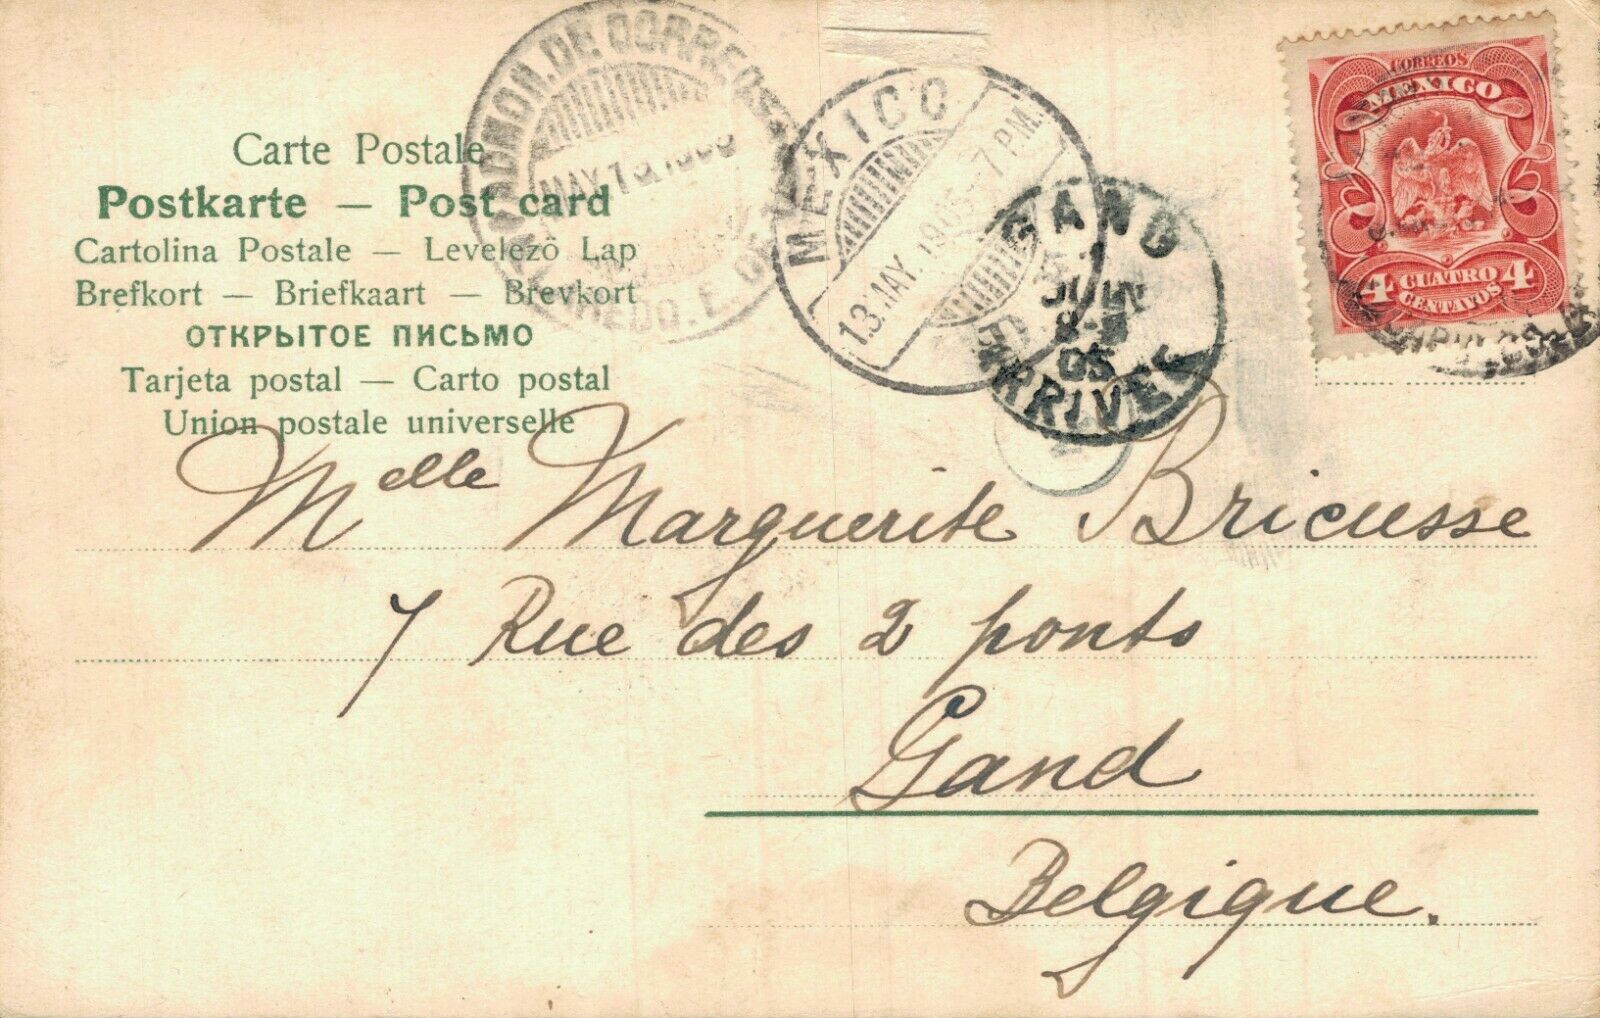 Carte Postale
Postkarte — Post card
Cartolina Postale — Levelezö Lap
Brefkort — Briefkaart — Brevkort
ОТКРЫТОЕ ПИСЬМО
Tarjeta postal — Carto postal
Union postale universelle
ADMON. DE CORREOS
MAY
LAREDO. E. DE
MEXICO
13.MAY.1905 7 PM.
GAND
1
JUIN
05
ARRIVEE
CORREOS
MEXICO
4 CUATRO 4
CENTAVOS
Melle Marguerite Bricusse
7 Rue des 2 ponts
Gand
Belgique.